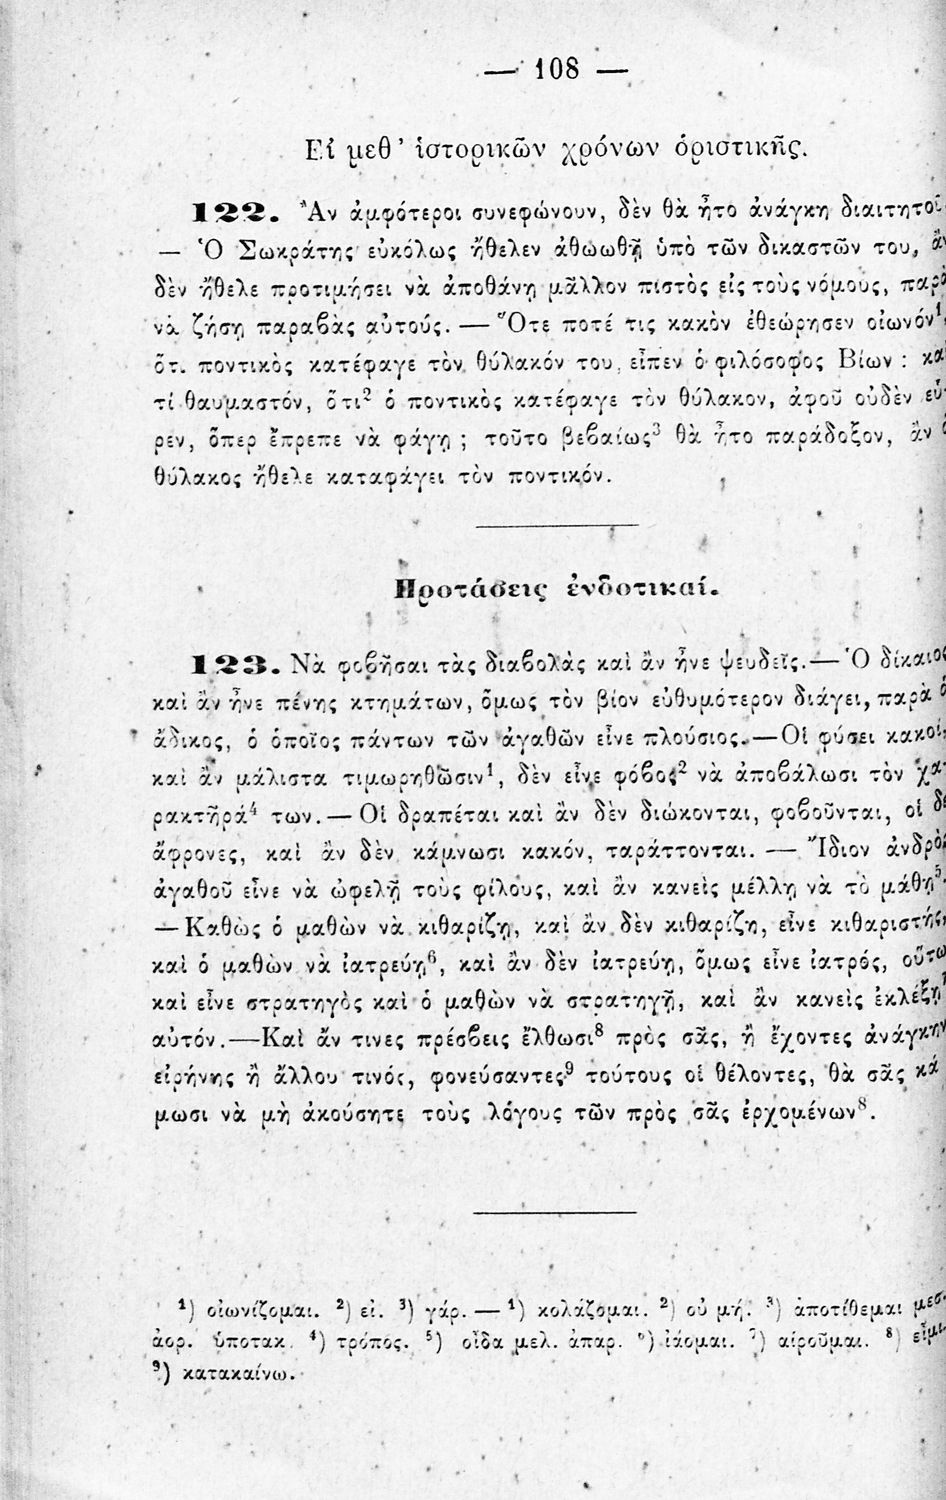 — 108 —
Εἰ μεθ’ ἱστορικῶν χρόνων ὁριστικῆς.
122. Ἂν ἀμφότεροι συνεφώνουν, δὲν θὰ ἦτο ἀνάγκη διαιτητοῦ
— Ὁ Σωκράτης εὐκόλως ἤθελεν ἀθωωθῆ ὑπὸ τῶν δικαστῶν του, ἂν
δὲν ἤθελε προτιμήσει νὰ ἀποθάνῃ μᾶλλον πιστὸς εἰς τοὺς νόμους, παρὰ
νὰ ζήσῃ παραβὰς αὐτούς. — Ὅτε ποτέ τις κακὸν ἐθεώρησεν οἰωνόν¹,
ὅτι ποντικὸς κατέφαγε τὸν θύλακόν του, εἶπεν ὁ φιλόσοφος Βίων : καὶ
τί θαυμαστόν, ὅτι² ὁ ποντικὸς κατέφαγε τὸν θύλακον, ἀφοῦ οὐδὲν εὗ-
ρεν, ὅπερ ἔπρεπε νὰ φάγῃ ; τοῦτο βεβαίως³ θὰ ἦτο παράδοξον, ἂν ὁ
θύλακος ἤθελε καταφάγει τὸν ποντικόν.
Προτάσεις ἐνδοτικαί.
123. Νὰ φοβῆσαι τὰς διαβολὰς καὶ ἂν ἦνε ψευδεῖς.— Ὁ δίκαιος
καὶ ἂν ἦνε πένης κτημάτων, ὅμως τὸν βίον εὐθυμότερον διάγει, παρὰ ὁ
ἄδικος, ὁ ὁποῖος πάντων τῶν ἀγαθῶν εἶνε πλούσιος.—Οἱ φύσει κακοί,
καὶ ἂν μάλιστα τιμωρηθῶσιν¹, δὲν εἶνε φόβος² νὰ ἀποβάλωσι τὸν χα-
ρακτῆρά⁴ των.— Οἱ δραπέται καὶ ἂν δὲν διώκονται, φοβοῦνται, οἱ δὲ
ἄφρονες, καὶ ἂν δὲν κάμνωσι κακόν, ταράττονται. — Ἴδιον ἀνδρὸς
ἀγαθοῦ εἶνε νὰ ὠφελῇ τοὺς φίλους, καὶ ἂν κανεὶς μέλλῃ νὰ τὸ μάθῃ⁵.
—Καθὼς ὁ μαθὼν νὰ κιθαρίζῃ, καὶ ἂν δὲν κιθαρίζῃ, εἶνε κιθαριστής,
καὶ ὁ μαθὼν νὰ ἰατρεύῃ⁶, καὶ ἂν δὲν ἰατρεύῃ, ὅμως εἶνε ἰατρός, οὕτω
καὶ εἶνε στρατηγὸς καὶ ὁ μαθὼν νὰ στρατηγῇ, καὶ ἂν κανεὶς ἐκλέξῃ⁷
αὐτόν.—Καὶ ἄν τινες πρέσβεις ἔλθωσι⁸ πρὸς σᾶς, ἢ ἔχοντες ἀνάγκην
εἰρήνης ἢ ἄλλου τινός, φονεύσαντες⁹ τούτους οἱ θέλοντες, θὰ σᾶς κά
μωσι νὰ μὴ ἀκούσητε τοὺς λόγους τῶν πρὸς σᾶς ἐρχομένων⁸.
¹) οἰωνίζομαι. ²) εἰ. ³) γάρ. — ¹) κολάζομαι. ²) οὐ μή. ³) ἀποτίθεμαι μεσ.
ἀορ. ὑποτακ. ⁴) τρόπος. ⁵) οἶδα μελ. ἀπαρ. ⁶) ἰάομαι. ⁷) αἱροῦμαι. ⁸) εἶμι.
⁹) κατακαίνω.